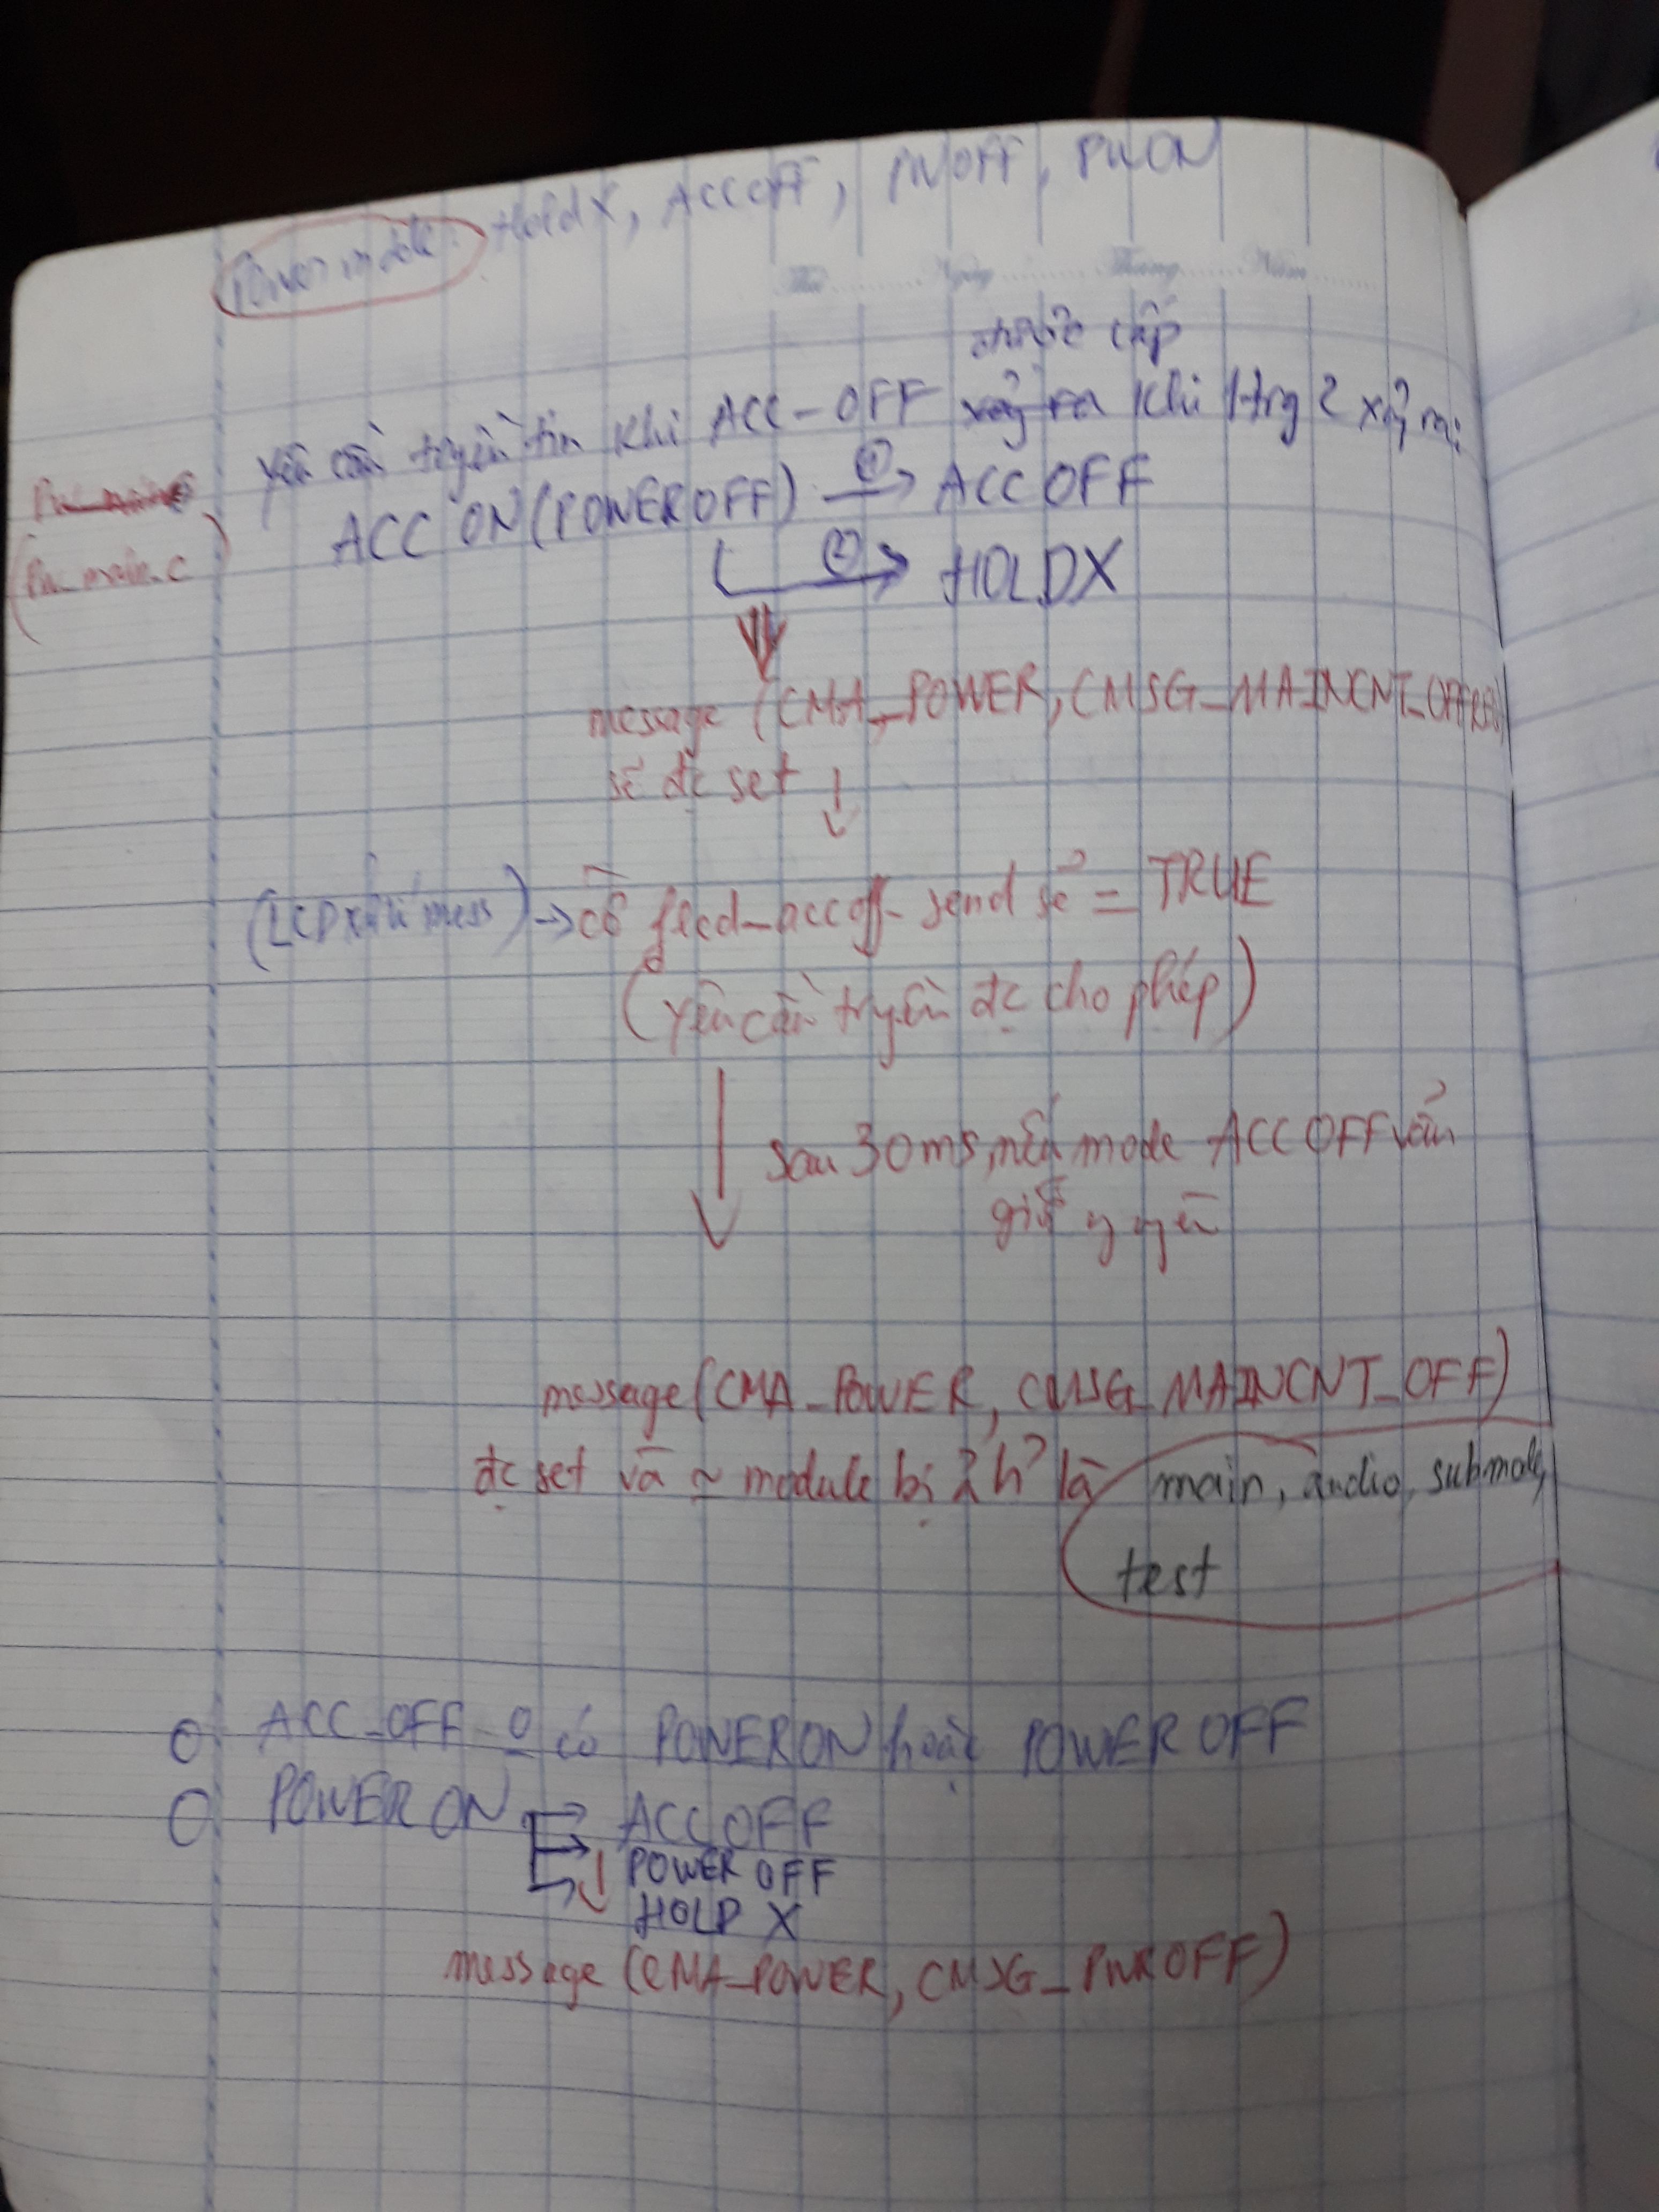 Power mode: HoldX, ACCOFF, PWOFF, PWON
Thứ Ngày Tháng Năm
được cấp
yêu cầu truyền tin khi ACC-OFF xảy ra khi 1 trg 2 xảy ra:
ACC ON (POWER OFF) ① → ACC OFF
② → HOLDX
(Pw_main.c
message (CMA_POWER, CMSG_MAINCNT_OFFREQ)
sẽ đc set ↓
(LCD xử lí mess) → cờ feed_accoff_send sẽ = TRUE
(yêu cầu truyền đc cho phép)
sau 30ms, nếu mode ACC OFF vẫn
giữ nguyên
message (CMA_POWER, CMSG_MAINCNT_OFF)
đc set và ~ module bị ảh' là main, audio, submode,
test
O ACC_OFF O có POWER ON hoặc POWER OFF
O POWER ON → ACC OFF
→ POWER OFF
→ HOLD X
message (CMA_POWER, CMSG_PWROFF)